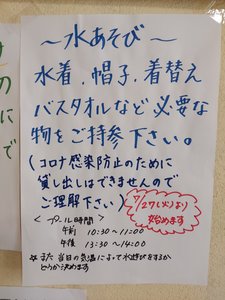 ～水あそび～
水着.帽子.着替え
バスタオルなど必要な
物をご持参下さい。
(コロナ感染防止のために
貸し出しはできませんので
ご理解下さい)
7/27(火)より
始めます
＜プール時間＞
午前 10:30～11:00
午後 13:30～14:00
☆また当日の気温によって水遊びをするか
どうか決めます